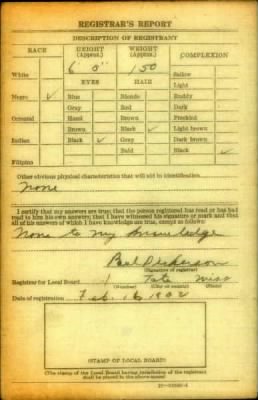 REGISTRAR'S REPORT
DESCRIPTION OF REGISTRANT
RACE HEIGHT (Approx.) WEIGHT (Approx.) COMPLEXION
6' 0" 150
White EYES HAIR Sallow
Light
Negro ✓ Blue Blonde Ruddy
Gray Red Dark
Oriental Hazel Brown Freckled
Brown Black ✓ Light brown
Indian Black ✓ Gray Dark brown
Bald Black ✓
Filipino
Other obvious physical characteristics that will aid in identification
None
I certify that my answers are true; that the person registered has read or has had
read to him his own answers; that I have witnessed his signature or mark and that
all of his answers of which I have knowledge are true, except as follows:
None to my knowledge
Dickerson
(Signature of registrar)
Registrar for Local Board 1 Tate Miss
(Number) (City or county) (State)
Date of registration Feb. 16
(STAMP OF LOCAL BOARD)
(The stamp of the Local Board having jurisdiction of the registrant
shall be placed in the above space)